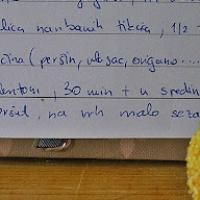 lica naribanih tikvica, 1/2
čina (peršin, vlasac, origano....
entom, 30 min + u sredin
oršut, na vrh malo seza